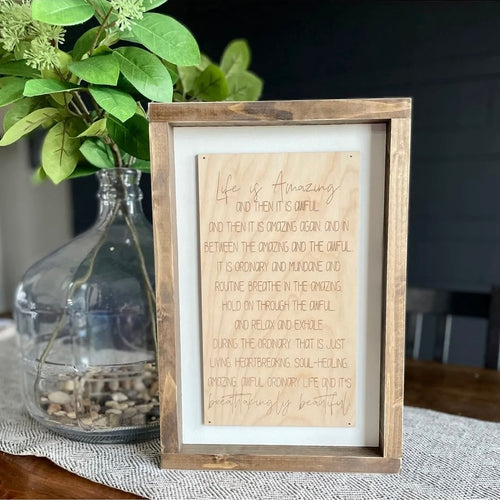 Life is Amazing.
AND THEN IT IS AWFUL.
AND THEN IT IS AMAZING AGAIN. AND IN
BETWEEN THE AMAZING AND THE AWFUL,
IT IS ORDINARY AND MUNDANE AND
ROUTINE. BREATHE IN THE AMAZING,
HOLD ON THROUGH THE AWFUL,
AND RELAX AND EXHALE
DURING THE ORDINARY. THAT IS JUST
LIVING. HEARTBREAKING, SOUL-HEALING,
AMAZING, AWFUL, ORDINARY LIFE. AND IT'S
breathtakingly beautiful.